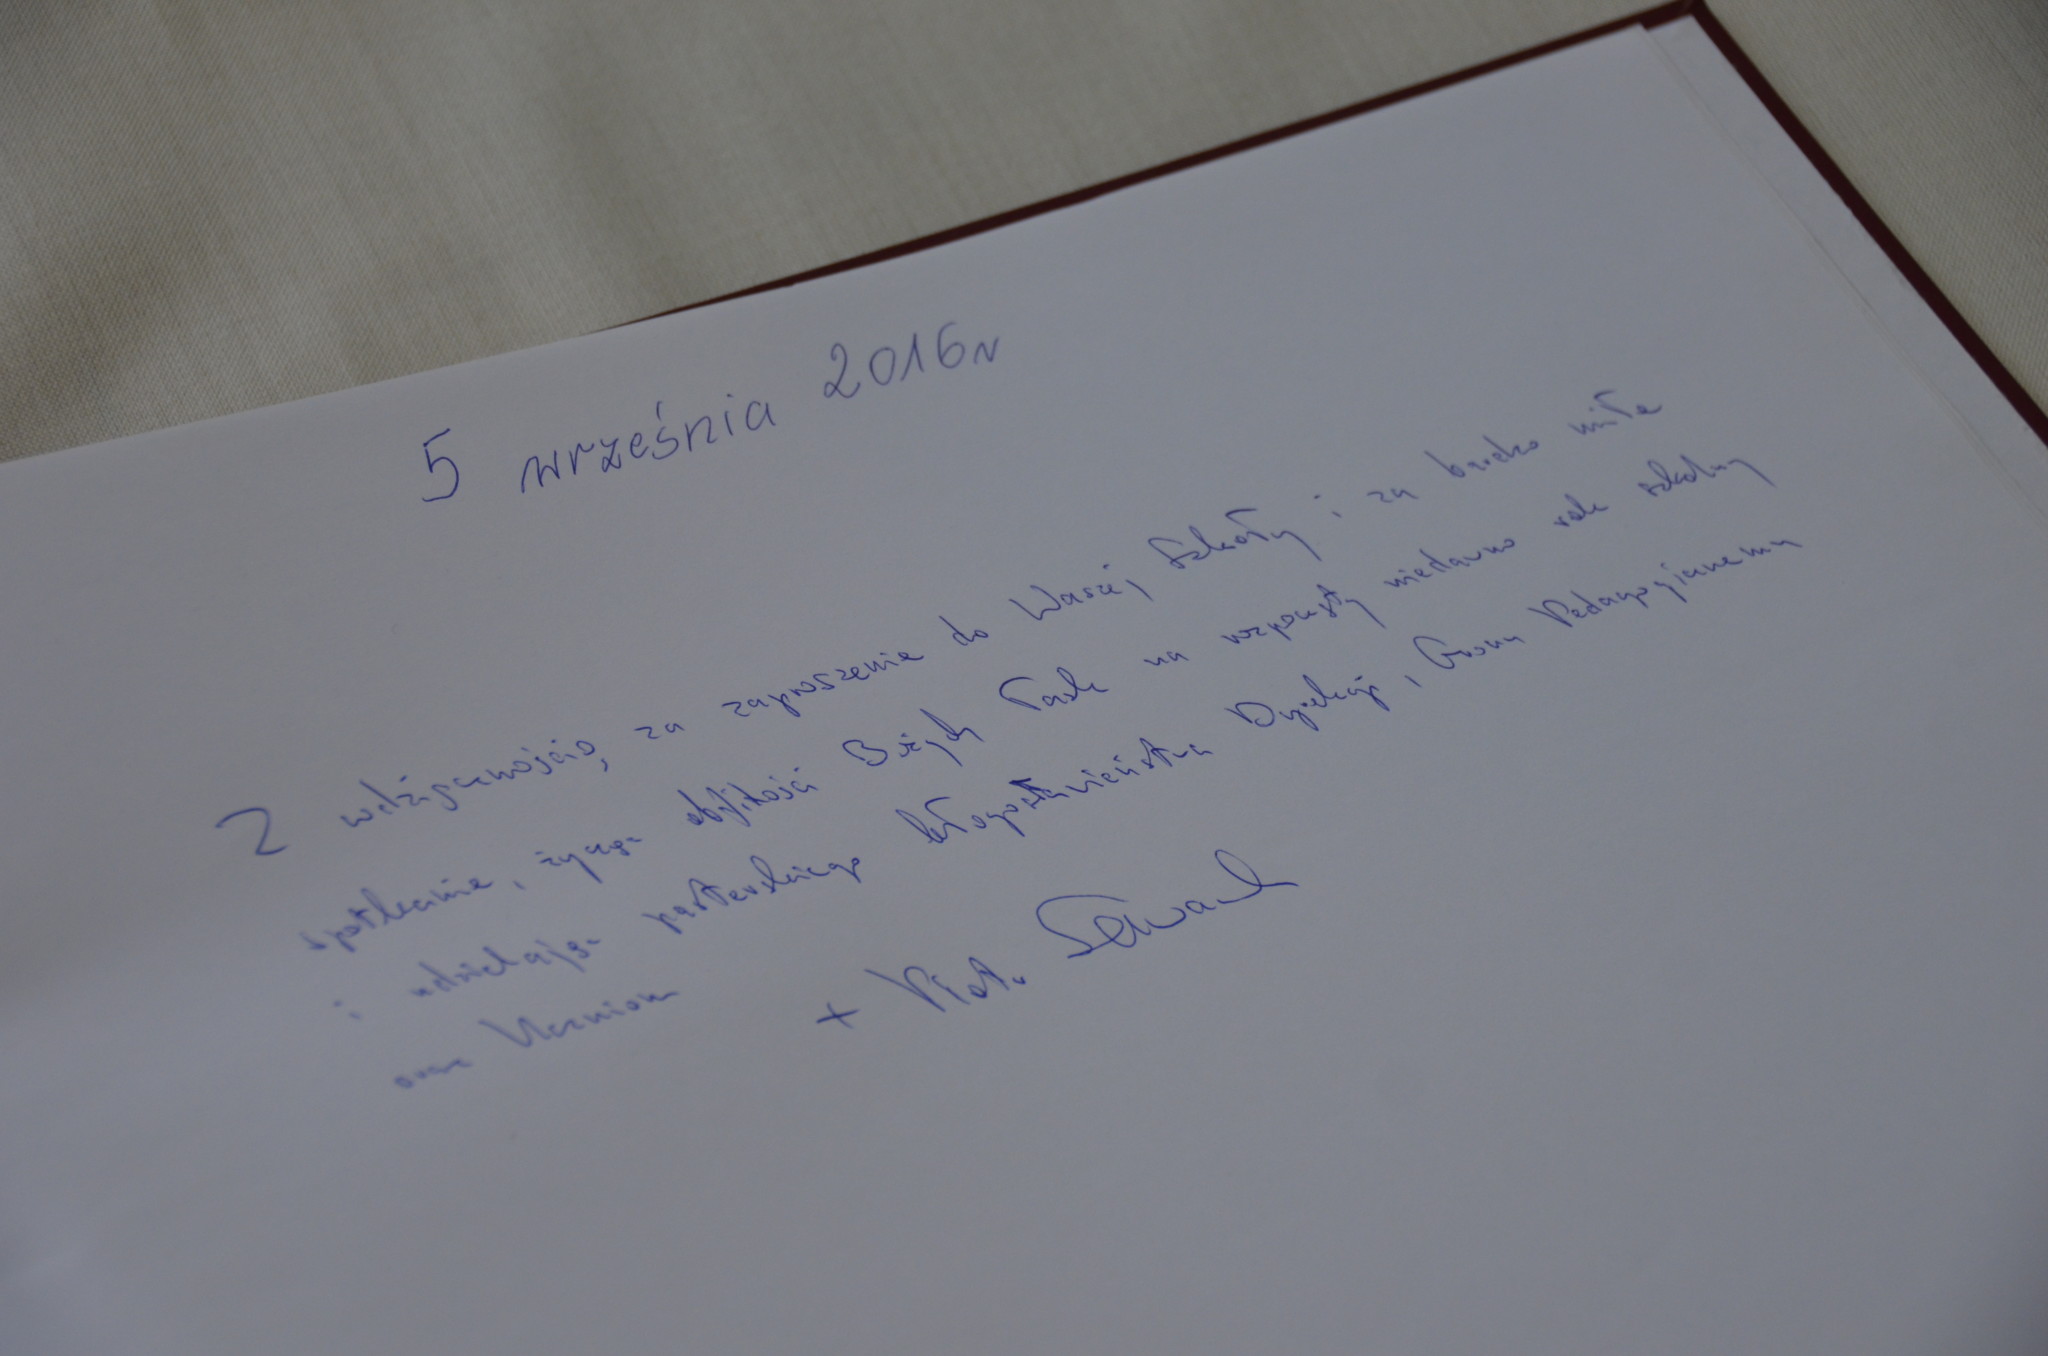 5 września 2016r
Z wdzięcznością za zaproszenie do Waszej Szkoły i za bardzo miłe
spotkanie, życzę obfitości Bożych Łask na rozpoczęty niedawno rok szkolny
i udzielając pasterskiego błogosławieństwa Dyrekcji, Gronu Pedagogicznemu
oraz Uczniom
+ Piotr Sawczuk